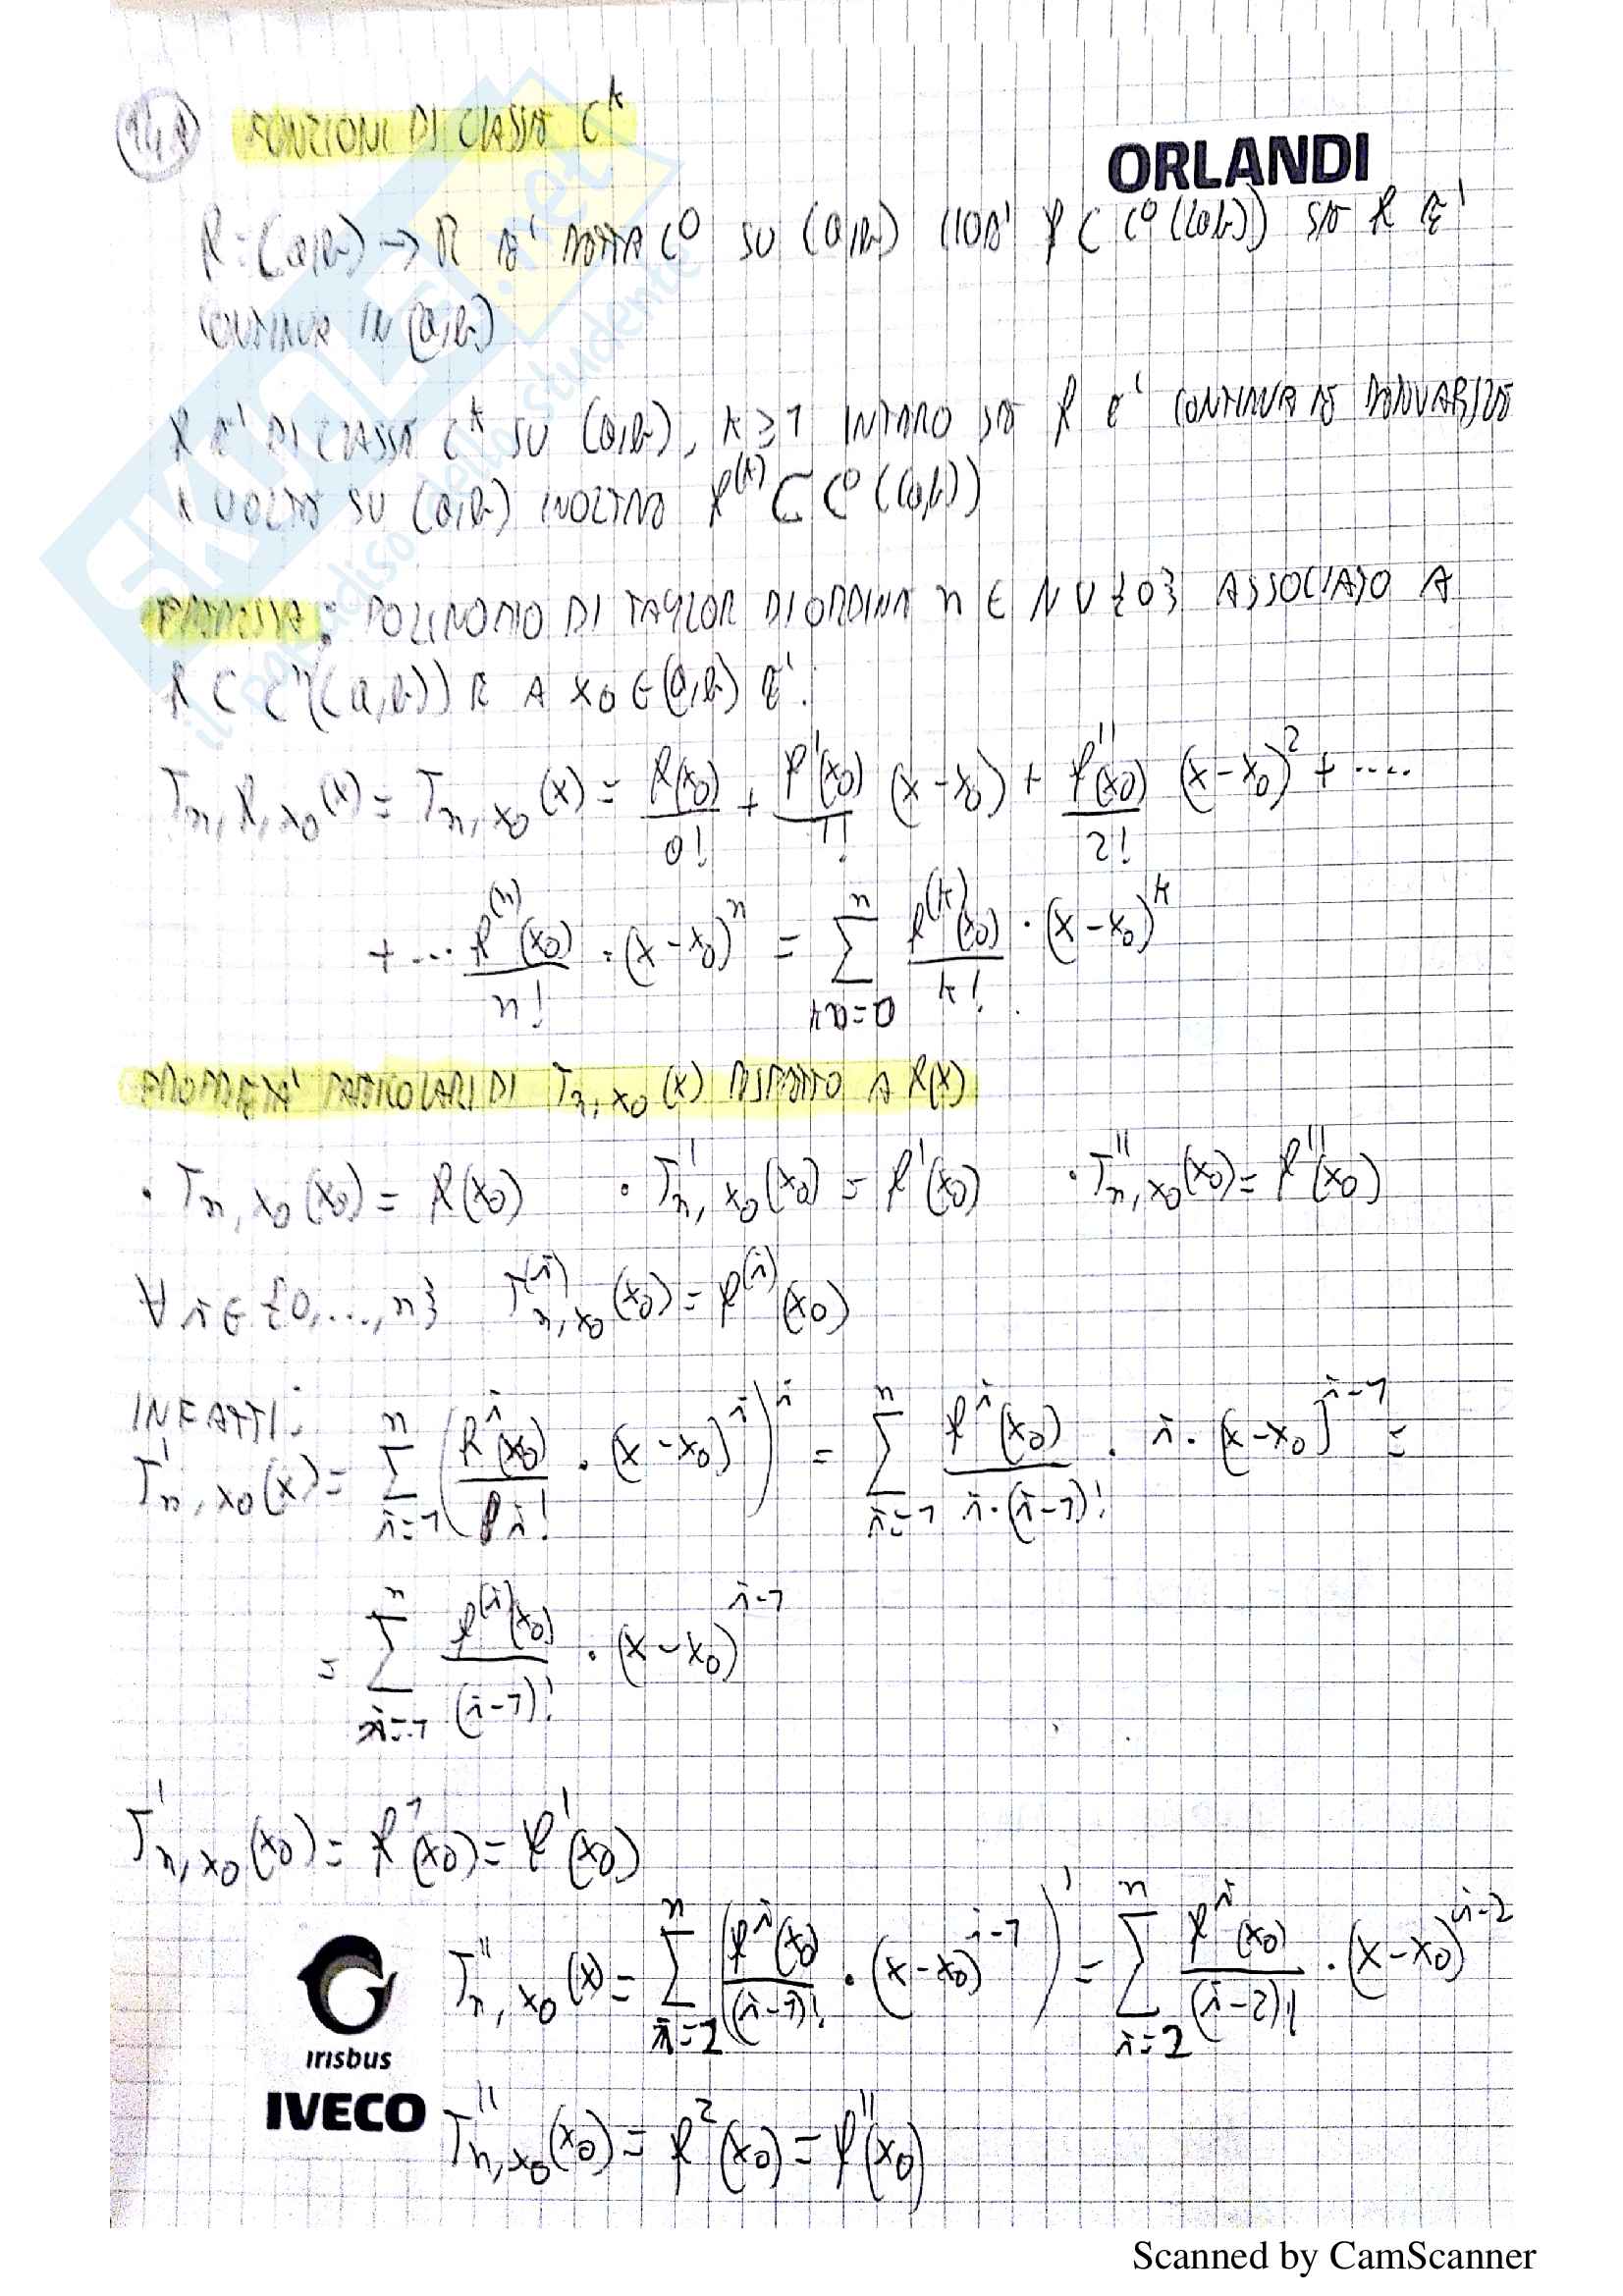 14A FUNZIONI DI CLASSE C^k
ORLANDI
f: (a,b) → R E' DETTA C^0 SU (a,b) CIOE' f ⊂ C^0((a,b)) SE f E'
CONTINUA IN (a,b)
f E' DI CLASSE C^k SU (a,b), k ≥ 1 INTERO SE f E' CONTINUA E DERIVABILE
k VOLTE SU (a,b) INOLTRE f^(k) ⊂ C^0((a,b))
PREMESSA: POLINOMIO DI TAYLOR DI ORDINE n ∈ N ∪ {0} ASSOCIATO A
f ⊂ C^n((a,b)) E A x_0 ∈ (a,b) E':
T_{n,f,x_0}(x) = T_{n,x_0}(x) = f(x_0)/0! + f'(x_0)/1! (x-x_0) + f''(x_0)/2! (x-x_0)^2 + ....
+ ... f^(n)(x_0)/n! · (x-x_0)^n = Σ_{k=0}^{n} f^(k)(x_0)/k! · (x-x_0)^k
PROPRIETA' PARTICOLARI DI T_{n,x_0}(x) RISPETTO A f(x)
· T_{n,x_0}(x_0) = f(x_0) · T'_{n,x_0}(x_0) = f'(x_0) · T''_{n,x_0}(x_0) = f''(x_0)
∀ i ∈ {0,...,n} T^(i)_{n,x_0}(x_0) = f^(i)(x_0)
INFATTI:
T'_{n,x_0}(x) = Σ_{i=1}^{n} (f^i(x_0)/i! · (x-x_0)^i)^i = Σ_{i=1}^{n} f^i(x_0)/(i·(i-1)!) · i · (x-x_0)^{i-1} =
= Σ_{i=1}^{n} f^(i)(x_0)/(i-1)! · (x-x_0)^{i-1}
T'_{n,x_0}(x_0) = f^1(x_0) = f'(x_0)
T''_{n,x_0}(x) = Σ_{i=2}^{n} (f^i(x_0)/(i-1)! · (x-x_0)^{i-1})' = Σ_{i=2}^{n} f^i(x_0)/(i-2)! · (x-x_0)^{i-2}
T''_{n,x_0}(x_0) = f^2(x_0) = f''(x_0)
irisbus
IVECO
SKUOLA.net
il paradiso dello studente
Scanned by CamScanner